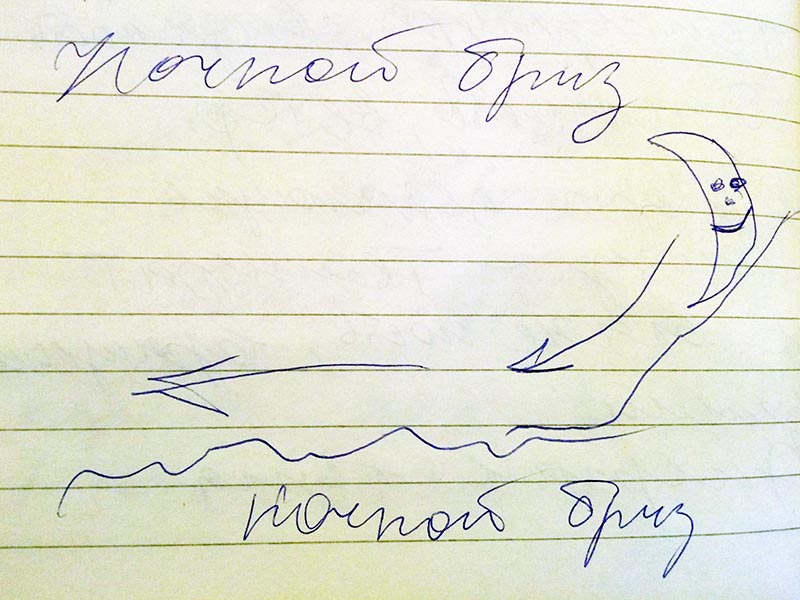 Ночной бриз
ночной бриз